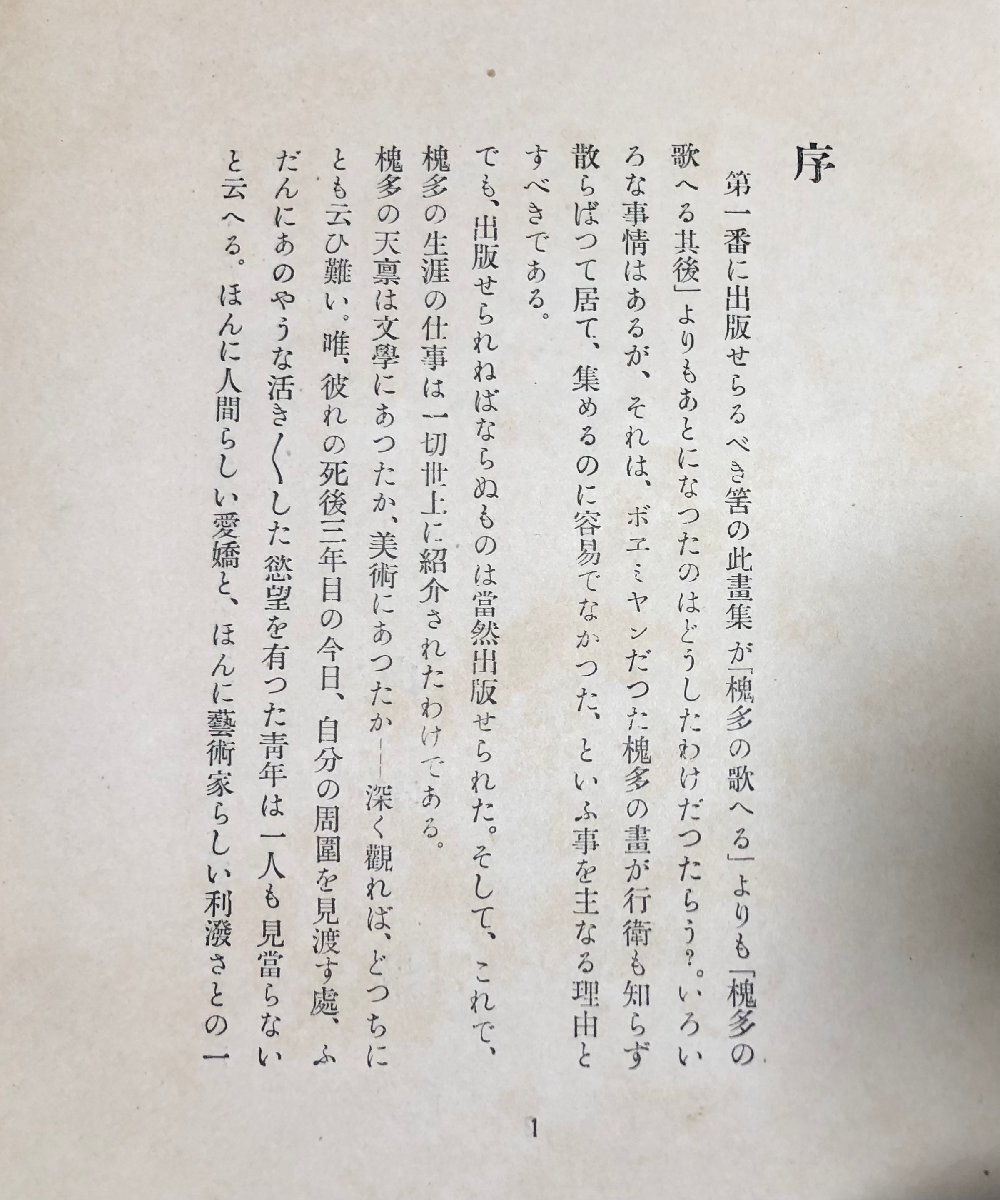 序
第一番に出版せらるべき筈の此畫集が「槐多の歌へる」よりも「槐多の
歌へる其後」よりもあとになつたのはどうしたわけだつたらう?。いろい
ろな事情はあるが、それは、ボヱミヤンだつた槐多の畫が行衞も知らず
散らばつて居て、集めるのに容易でなかつた、といふ事を主なる理由と
すべきである。
でも、出版せられねばならぬものは當然出版せられた。そして、これで、
槐多の生涯の仕事は一切世上に紹介されたわけである。
槐多の天禀は文學にあつたか、美術にあつたか――深く觀れば、どつちに
とも云ひ難い。唯、彼れの死後三年目の今日、自分の周圍を見渡す處、ふ
だんにあのやうな活き〱した慾望を有つた靑年は一人も見當らない
と云へる。ほんに人間らしい愛嬌と、ほんに藝術家らしい利潑さとの一
1